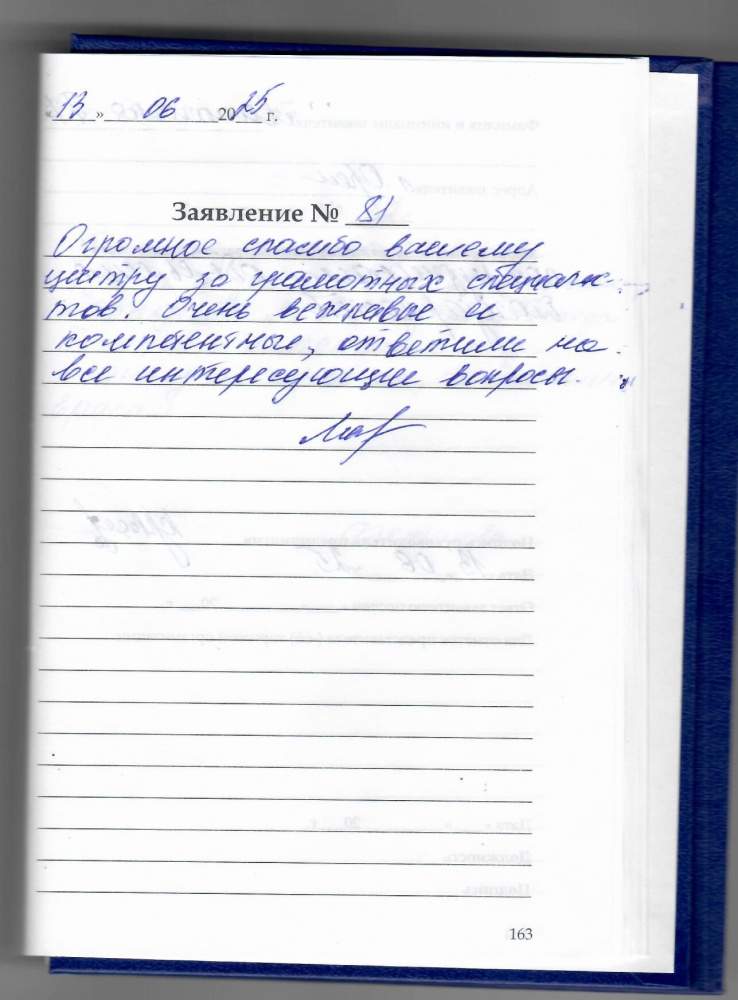 «13» 06 2025 г.
Заявление № 81
Огромное спасибо вашему
центру за грамотных специалис-
тов. Очень вежливые и
компетентные, ответили на
все интересующие вопросы.
163